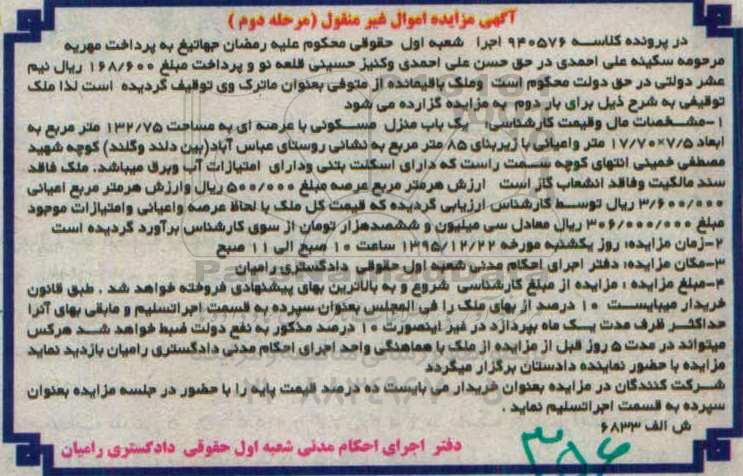 آگهی مزایده اموال غیر منقول (مرحله دوم )
در پرونده کلاسه ۹۴۰۵۷۶ اجرا شعبه اول حقوقی محکوم علیه رمضان جهانتیغ به پرداخت مهریه
مرحومه سکینه علی احمدی در حق حسن علی احمدی وکنیز حسینی قلعه نو و پرداخت مبلغ ۱۶۸/۶۰۰ ریال نیم
عشر دولتی در حق دولت محکوم است وملک باقیمانده از متوفی بعنوان ماترک وی توقیف گردیده است لذا ملک
توقیفی به شرح ذیل برای بار دوم به مزایده گزارده می شود
۱-مشخصات مال وقیمت کارشناسی: یک باب منزل مسکونی با عرصه ای به مساحت ۱۳۲/۷۵ متر مربع به
ابعاد ۷/۵×۱۷/۷۰ متر واعیانی با زیربنای ۸۵ متر مربع به نشانی روستای عباس آباد(بین دلند وگلند) کوچه شهید
مصطفی خمینی انتهای کوچه سمت راست که دارای اسکلت بتنی ودارای امتیازات آب وبرق میباشد. ملک فاقد
سند مالکیت وفاقد انشعاب گاز است ارزش هرمتر مربع عرصه مبلغ ۵۰۰/۰۰۰ ریال وارزش هرمتر مربع اعیانی
۳/۶۰۰/۰۰۰ ریال توسط کارشناس ارزیابی گردیده که قیمت کل ملک با لحاظ عرصه واعیانی وامتیازات موجود
مبلغ ۳۰۶/۰۰۰/۰۰۰ ریال معادل سی میلیون و ششصدهزار تومان از سوی کارشناس برآورد گردیده است
۲-زمان مزایده: روز یکشنبه مورخه ۱۳۹۵/۱۲/۲۲ ساعت ۱۰ صبح الی ۱۱ صبح
۳-مکان مزایده: دفتر اجرای احکام مدنی شعبه اول حقوقی دادگستری رامیان
۴-مبلغ مزایده : مزایده از مبلغ کارشناسی شروع و به بالاترین بهای پیشنهادی فروخته خواهد شد . طبق قانون
خریدار میبایست ۱۰ درصد از بهای ملک را فی المجلس بعنوان سپرده به قسمت اجراتسلیم و مابقی بهای آنرا
حداکثر ظرف مدت یک ماه بپردازد در غیر اینصورت ۱۰ درصد مذکور به نفع دولت ضبط خواهد شد هرکس
میتواند در مدت ۵ روز قبل از مزایده از ملک با هماهنگی واحد اجرای احکام مدنی دادگستری رامیان بازدید نماید
مزایده با حضور نماینده دادستان برگزار میگردد
شرکت کنندگان در مزایده بعنوان خریدار می بایست ده درصد قیمت پایه را با حضور در جلسه مزایده بعنوان
سپرده به قسمت اجراتسلیم نماید .
ش الف ۶۸۳۳
دفتر اجرای احکام مدنی شعبه اول حقوقی دادگستری رامیان